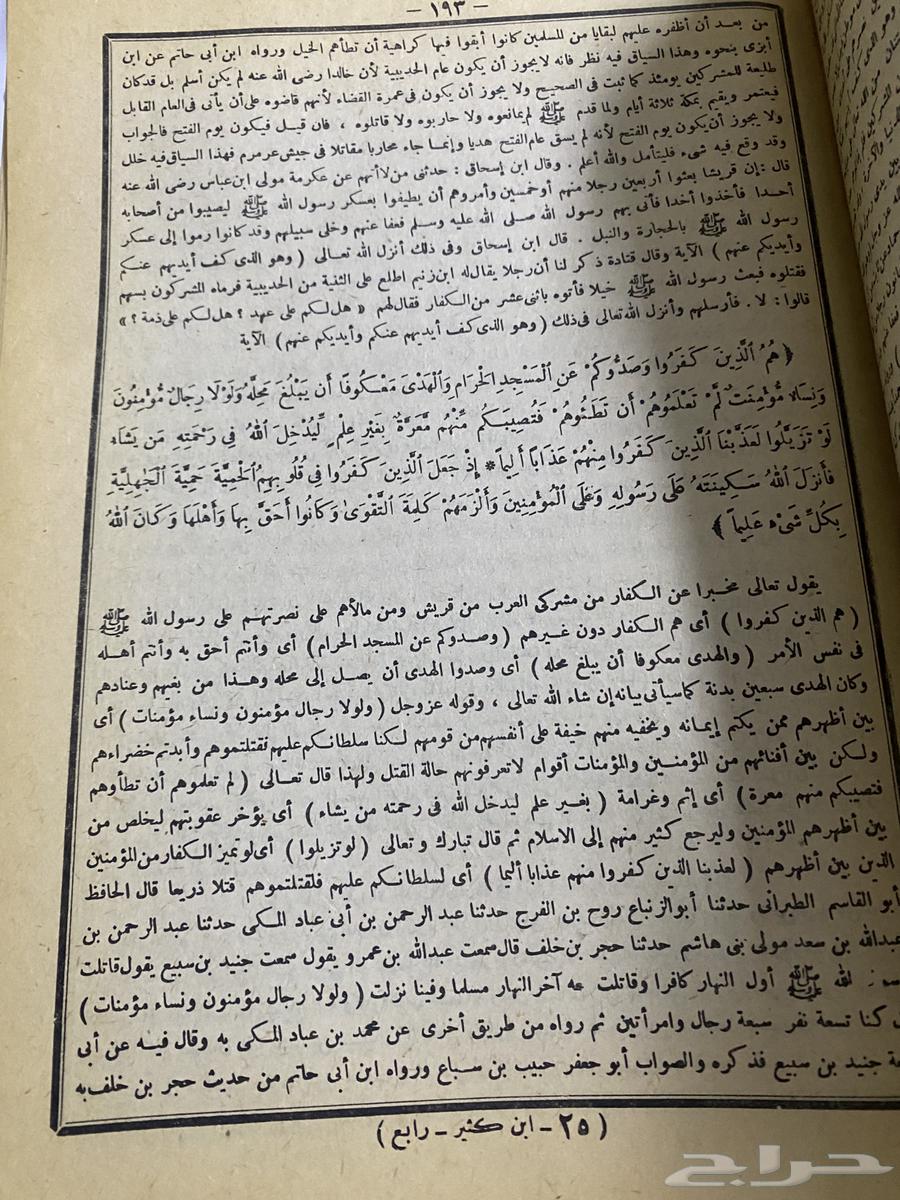 - ١٩٣ -
من بعد أن أظفره عليهم لبقايا من المسلمين كانوا أبقوا فيها كراهية أن تطأهم الخيل ورواه ابن أبى حاتم عن ابن
أبزى بنحوه وهذا السياق فيه نظر فانه لايجوز أن يكون عام الحديبية لأن خالدا رضى الله عنه لم يكن أسلم بل قد كان
طليعة للمشركين يومئذ كما ثبت فى الصحيح ولا يجوز أن يكون فى عمرة القضاء لأنهم قاضوه على أن يأتى فى العام القابل
فيعتمر ويقيم بمكة ثلاثة أيام ولما قدم ﷺ لم يمانعوه ولا حاربوه ولا قاتلوه ، فان قيل فيكون يوم الفتح فالجواب
ولا يجوز أن يكون يوم الفتح لأنه لم يسق عام الفتح هديا وإنما جاء محاربا مقاتلا فى جيش عرمرم فهذا السياق فيه خلل
وقد وقع فيه شىء فليتأمل والله أعلم . وقال ابن إسحاق : حدثنى من لا أتهم عن عكرمة مولى ابن عباس رضى الله عنه
قال : إن قريشا بعثوا أربعين رجلا منهم أو خمسين وأمروهم أن يطيفوا بعسكر رسول الله ﷺ ليصيبوا من أصحابه
أحدا فأخذوا أخدا فأتى بهم رسول الله صلى الله عليه وسلم فعفا عنهم وخلى سبيلهم وقد كانوا رموا إلى عسكر
رسول الله ﷺ بالحجارة والنبل . قال ابن إسحاق وفى ذلك أنزل الله تعالى ( وهو الذى كف أيديهم عنكم
وأيديكم عنهم ) الآية وقال قتادة ذكر لنا أن رجلا يقال له ابن زنيم اطلع على الثنية من الحديبية فرماه المشركون بسهم
فقتلوه فبعث رسول الله ﷺ خيلا فأتوه باثنى عشر من الكفار فقال لهم « هل لكم على عهد ؟ هل لكم على ذمة ؟ »
قالوا : لا . فأرسلهم وأنزل الله تعالى فى ذلك ( وهو الذى كف أيديهم عنكم وأيديكم عنهم ) الآية
﴿ هُمُ ٱلَّذِينَ كَفَرُوا وَصَدُّوكُمْ عَنِ ٱلْمَسْجِدِ ٱلْحَرَامِ وَٱلْهَدْىَ مَعْكُوفًا أَن يَبْلُغَ مَحِلَّهُ وَلَوْلَا رِجَالٌ مُّؤْمِنُونَ
وَنِسَاءٌ مُّؤْمِنَٰتٌ لَّمْ تَعْلَمُوهُمْ أَن تَطَئُوهُمْ فَتُصِيبَكُم مِّنْهُم مَّعَرَّةٌ بِغَيْرِ عِلْمٍ لِّيُدْخِلَ ٱللَّهُ فِى رَحْمَتِهِ مَن يَشَاءُ
لَوْ تَزَيَّلُوا لَعَذَّبْنَا ٱلَّذِينَ كَفَرُوا مِنْهُمْ عَذَابًا أَلِيمًا * إِذْ جَعَلَ ٱلَّذِينَ كَفَرُوا فِى قُلُوبِهِمُ ٱلْحَمِيَّةَ حَمِيَّةَ ٱلْجَٰهِلِيَّةِ
فَأَنزَلَ ٱللَّهُ سَكِينَتَهُ عَلَى رَسُولِهِ وَعَلَى ٱلْمُؤْمِنِينَ وَأَلْزَمَهُمْ كَلِمَةَ ٱلتَّقْوَىٰ وَكَانُوا أَحَقَّ بِهَا وَأَهْلَهَا وَكَانَ ٱللَّهُ
بِكُلِّ شَىْءٍ عَلِيمًا ﴾
يقول تعالى مخبرا عن الكفار من مشركى العرب من قريش ومن مالأهم على نصرتهم على رسول الله ﷺ
( هم الذين كفروا ) أى هم الكفار دون غيرهم ( وصدوكم عن المسجد الحرام ) أى وأنتم أحق به وأنتم أهله
فى نفس الأمر ( والهدى معكوفا أن يبلغ محله ) أى وصدوا الهدى أن يصل إلى محله وهذا من بغيهم وعنادهم
وكان الهدى سبعين بدنة كما سيأتى بيانه إن شاء الله تعالى ، وقوله عزوجل ( ولولا رجال مؤمنون ونساء مؤمنات ) أى
بين أظهرهم ممن يكتم إيمانه ويخفيه منهم خيفة على أنفسهم من قومهم لكنا سلطناكم عليهم فقتلتموهم وأبدتم خضراءهم
ولكن بين أفنائهم من المؤمنين والمؤمنات أقوام لا تعرفونهم حالة القتل ولهذا قال تعالى ( لم تعلموهم أن تطأوهم
فتصيبكم منهم معرة ) أى إثم وغرامة ( بغير علم ليدخل الله فى رحمته من يشاء ) أى يؤخر عقوبتهم ليخلص من
بين أظهرهم المؤمنين وليرجع كثير منهم إلى الاسلام ثم قال تبارك و تعالى ( لو تزيلوا ) أى لو تميز الكفار من المؤمنين
الذين بين أظهرهم ( لعذبنا الذين كفروا منهم عذابا أليما ) أى لسلطناكم عليهم فلقتلتموهم قتلا ذريعا قال الحافظ
أبو القاسم الطبرانى حدثنا أبو الزنباع روح بن الفرج حدثنا عبد الرحمن بن أبى عباد المكى حدثنا عبد الرحمن بن
عبدالله بن سعد مولى بنى هاشم حدثنا حجر بن خلف قال سمعت عبدالله بن عمرو يقول سمعت جنيد بن سبيع يقول قاتلت
الله ﷺ أول النهار كافرا وقاتلت معه آخر النهار مسلما وفينا نزلت ( ولولا رجال مؤمنون ونساء مؤمنات )
كنا تسعة نفر سبعة رجال وامرأتين ثم رواه من طريق أخرى عن محمد بن عباد المكى به وقال فيه عن أبى
جنيد بن سبيع فذكره والصواب أبو جعفر حبيب بن سباع ورواه ابن أبى حاتم من حديث حجر بن خلف به
( ٢٥ - ابن كثير - رابع )
حراج